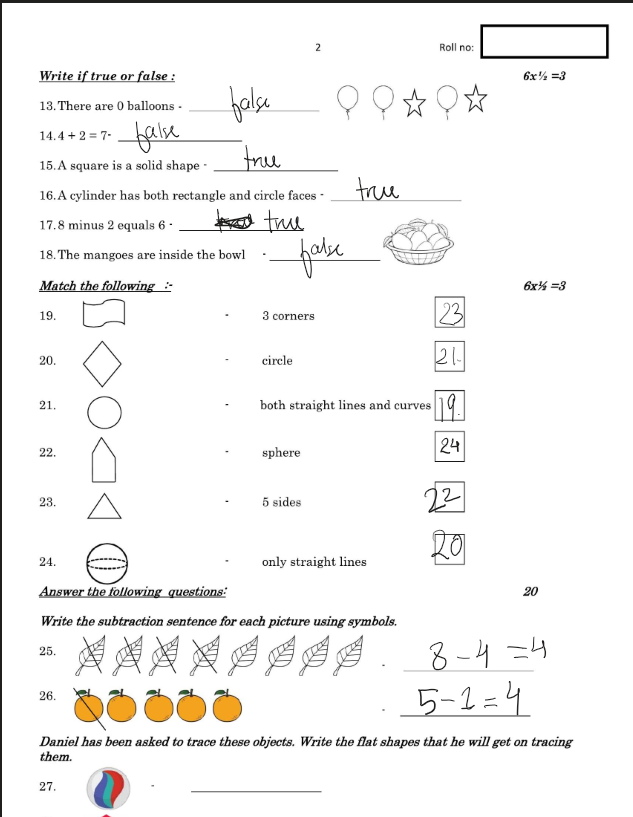 2 Roll no:
Write if true or false : 6x½ =3
13. There are 0 balloons - false
14. 4 + 2 = 7- false
15. A square is a solid shape - true
16. A cylinder has both rectangle and circle faces - true
17. 8 minus 2 equals 6 - true
18. The mangoes are inside the bowl - false
Match the following :- 6x½ =3
19. - 3 corners 23
20. - circle 21
21. - both straight lines and curves 19.
22. - sphere 24
23. - 5 sides 22
24. - only straight lines 20
Answer the following questions: 20
Write the subtraction sentence for each picture using symbols.
25. - 8-4=4
26. - 5-1=4
Daniel has been asked to trace these objects. Write the flat shapes that he will get on tracing
them.
27. -